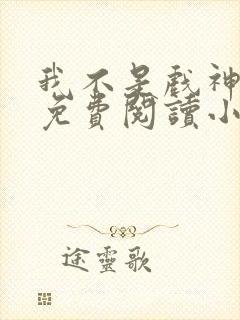 我不是戏神
免费閱讀小
途靈歌